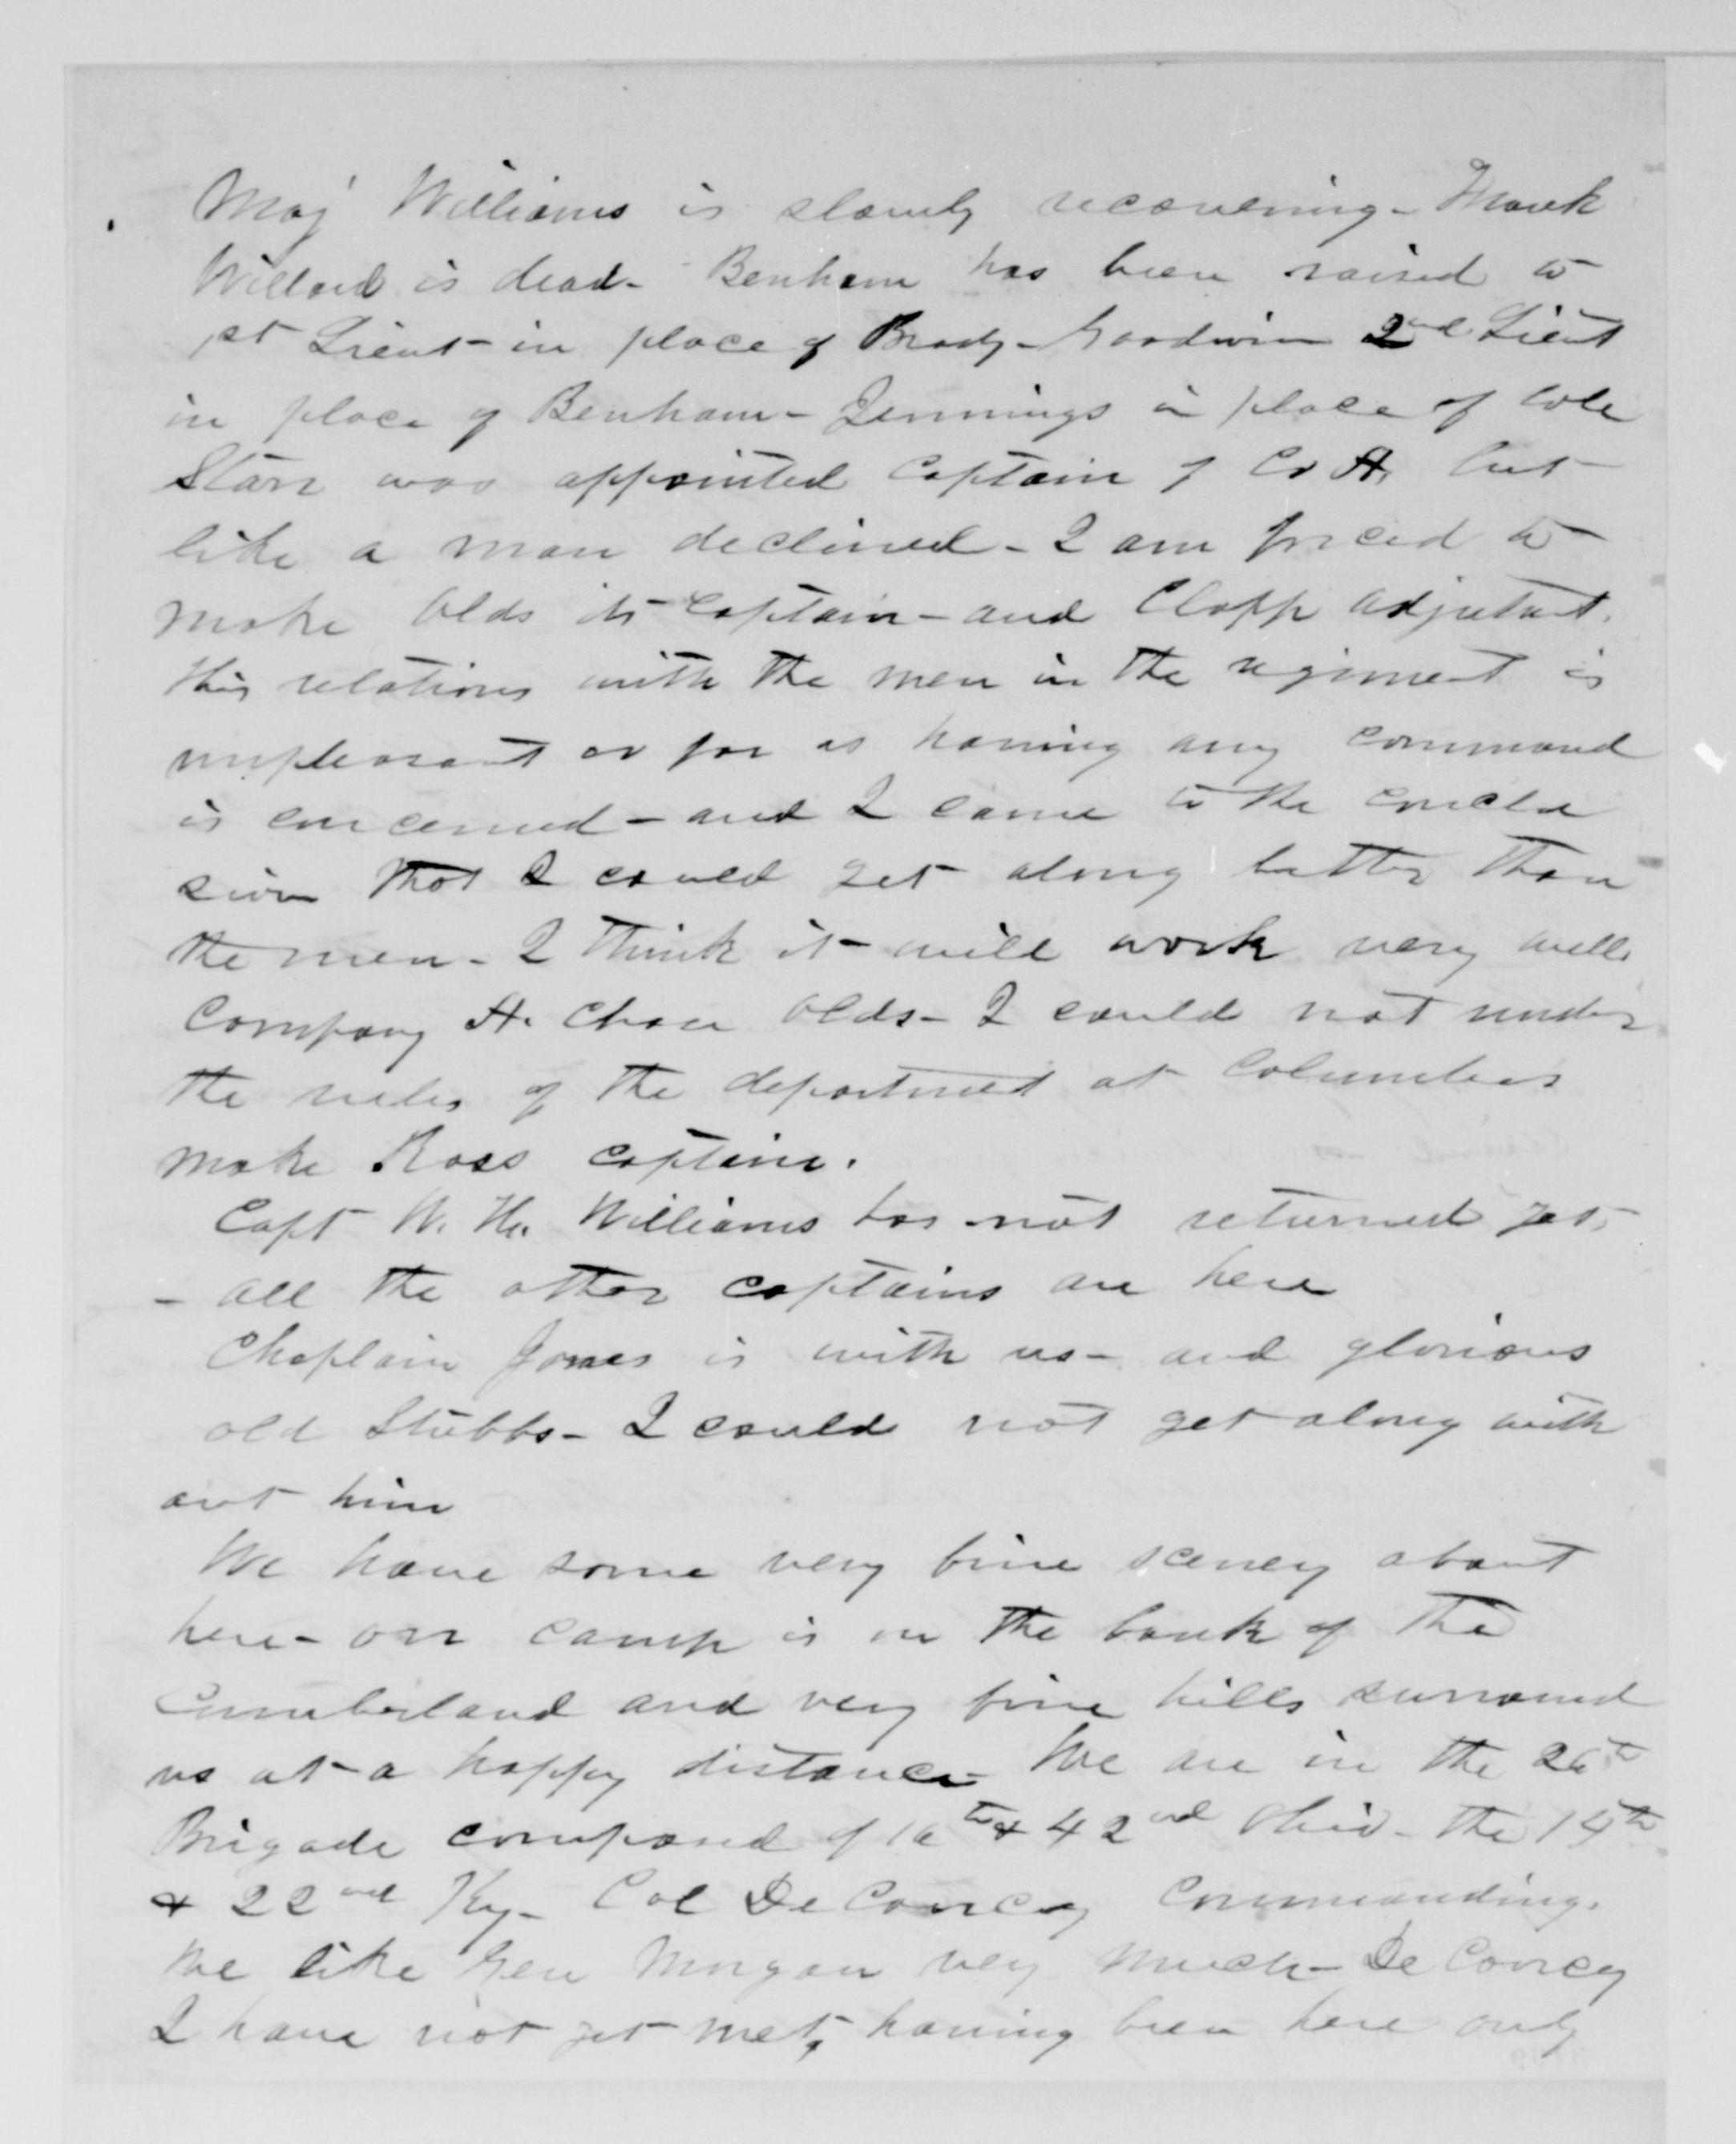 Maj Williams is slowly recovering - Mark
Willard is dead - Benham has been raised to
1st Lieut - in place of Brady - Goodwin 2nd Lieut
in place of Benham - Jennings in place of Cole
Starr was appointed Captain of Co A. but
like a man declined - I am forced to
make Olds its Captain - and Clapp adjutant.
His relations with the men in the regiment is
unpleasant as far as having any command
is concerned - and I came to the conclu
sion that I could get along better than
the men - I think it will work very well.
Company A. chose Olds - I could not under
the rules of the department at Columbus
make Ross captain.
Capt W. H. Williams has not returned yet,
- all the other captains are here
Chaplain Jones is with us - and glorious
old Stubbs - I could not get along with
out him
We have some very fine scenery about
here - our camp is on the bank of the
Cumberland and very fine hills surround
us at a happy distance - We are in the 26th
Brigade composed of 16th & 42nd Ohio - the 14th
& 22nd Ky - Col De Courcey Commanding.
We like Gen Morgan very much - De Courcey
I have not yet met, having been here only